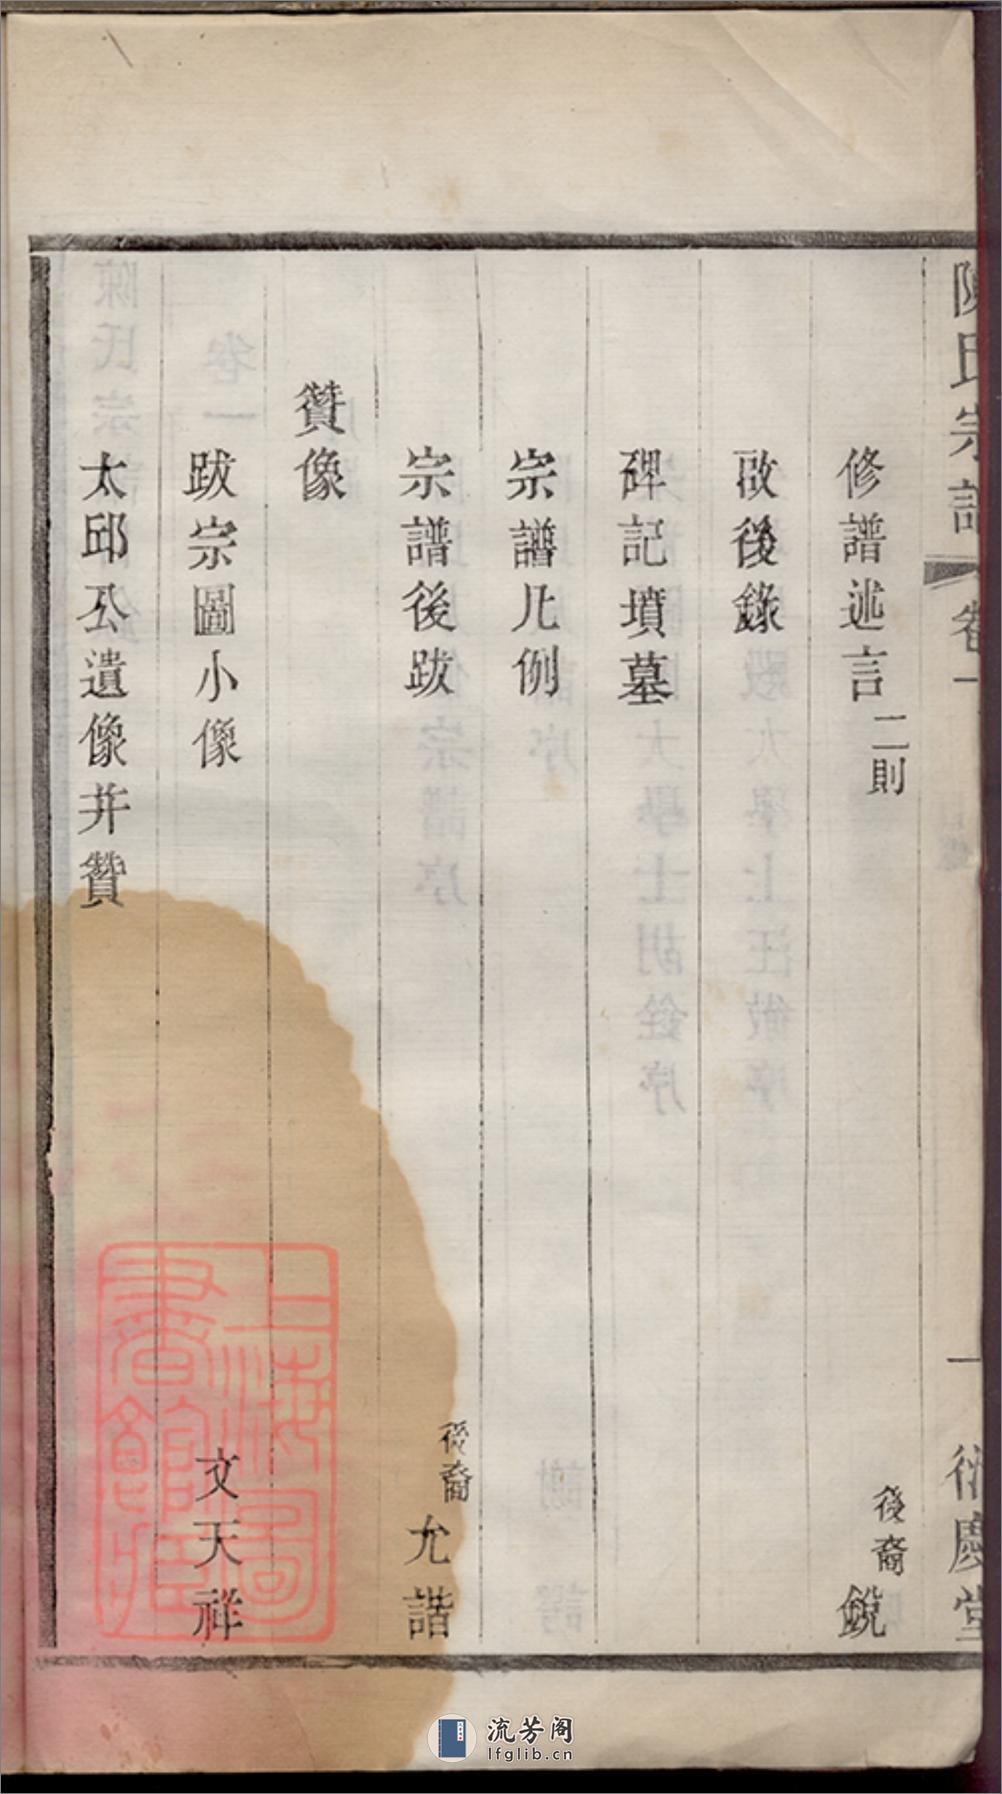 陳氏宗譜 卷一 一 衍慶堂
修譜述言 二則 後裔 鋭
啟後錄
碑記墳墓
宗譜凡例
宗譜後跋 後裔 允諧
贊像
跋宗圖小像 文天祥
太邱公遺像并贊
上海圖書館藏
流芳阁
lfglib.cn